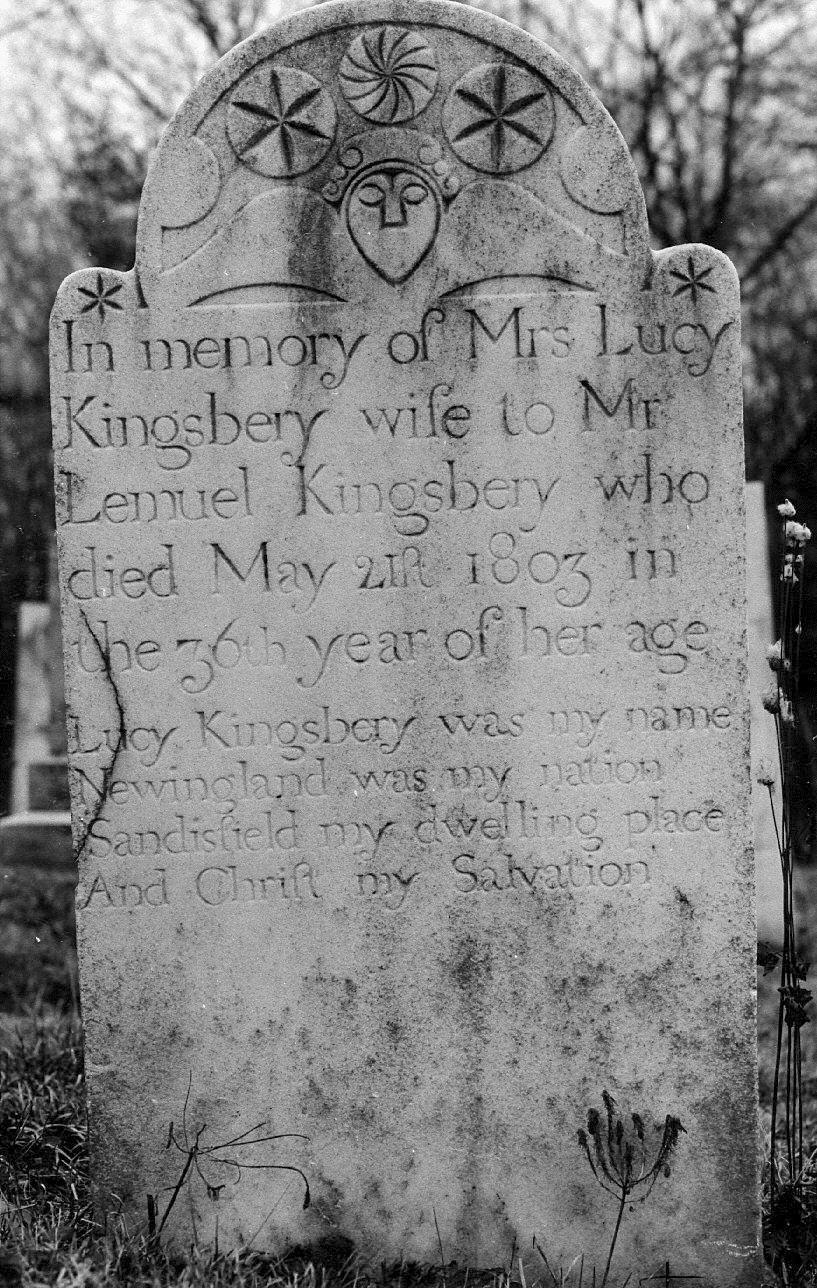 In memory of Mrs Lucy
Kingsbery wife to Mr
Lemuel Kingsbery who
died May 21ſt 1803 in
the 36th year of her age
Lucy Kingsbery was my name
Newingland was my nation
Sandisfield my dwelling place
And Chriſt my Salvation